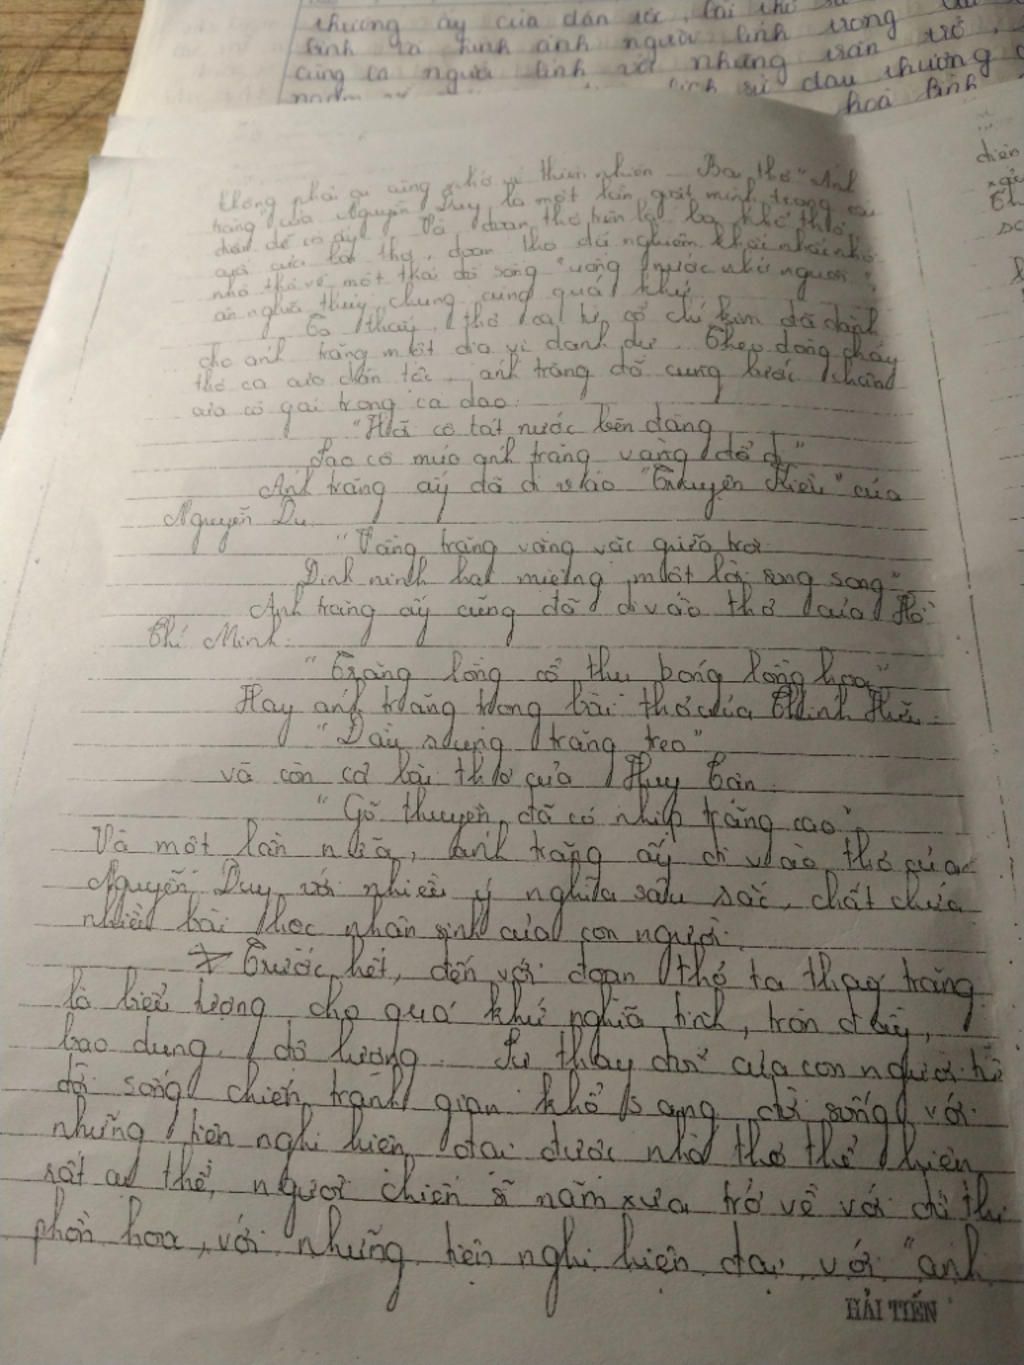 thương ấy của dân tộc, bài thơ
bình và hình ảnh người lính trong
cũng là người lính với những trăn trở,
lịch sử đau thương
hoá bình
không phải ai cũng nhớ về thiên nhiên. Bài thơ "Ánh
trăng" của Nguyễn Duy là một lần giật mình trong
vấn đề có ấy. Và đoạn thơ trên là ba khổ thơ
của bài thơ, đoạn thơ đã nghiêm khắc nhắc nhở
nhở thế về một thái độ sống "uống nước nhớ nguồn",
ân nghĩa thuỷ chung cùng quá khứ.
Ta thấy, thơ ca từ cổ chí kim đã dành
cho ánh trăng một địa vị danh dự. Theo dòng chảy
thơ ca của dân tộc, ánh trăng đã cùng bước chân
của cô gái trong ca dao:
"Hỡi cô tát nước bên đàng
Sao cô múc ánh trăng vàng đổ đi"
Ánh trăng ấy đã đi vào "Truyện Kiều" của
Nguyễn Du
"Vầng trăng vằng vặc giữa trời
Đinh ninh hai miệng một lời song song"
Ánh trăng ấy cũng đã đi vào thơ của Hồ
Chí Minh:
"Trăng lồng cổ thụ bóng lồng hoa"
Hay ánh trăng trong bài thơ của Chính Hữu:
"Đầu súng trăng treo"
và còn cả bài thơ của Huy Cận
"Gõ thuyền đã có nhịp trăng cao"
Và một lần nữa, ánh trăng ấy đi vào thơ của
Nguyễn Duy với nhiều ý nghĩa sâu sắc, chất chứa
nhiều bài học nhân sinh của con người.
* Trước hết, đến với đoạn thơ ta thấy trăng
là biểu tượng cho quá khứ nghĩa tình, tròn đầy,
bao dung, độ lượng. Sự thay đổi của con người từ
đời sống chiến tranh gian khổ sang đời sống với
những tiện nghi hiện đại được nhà thơ thể hiện
rất cụ thể, người chiến sĩ năm xưa trở về với đô thị
phồn hoa, với những tiện nghi hiện đại, với "ánh
HẢI TIẾN